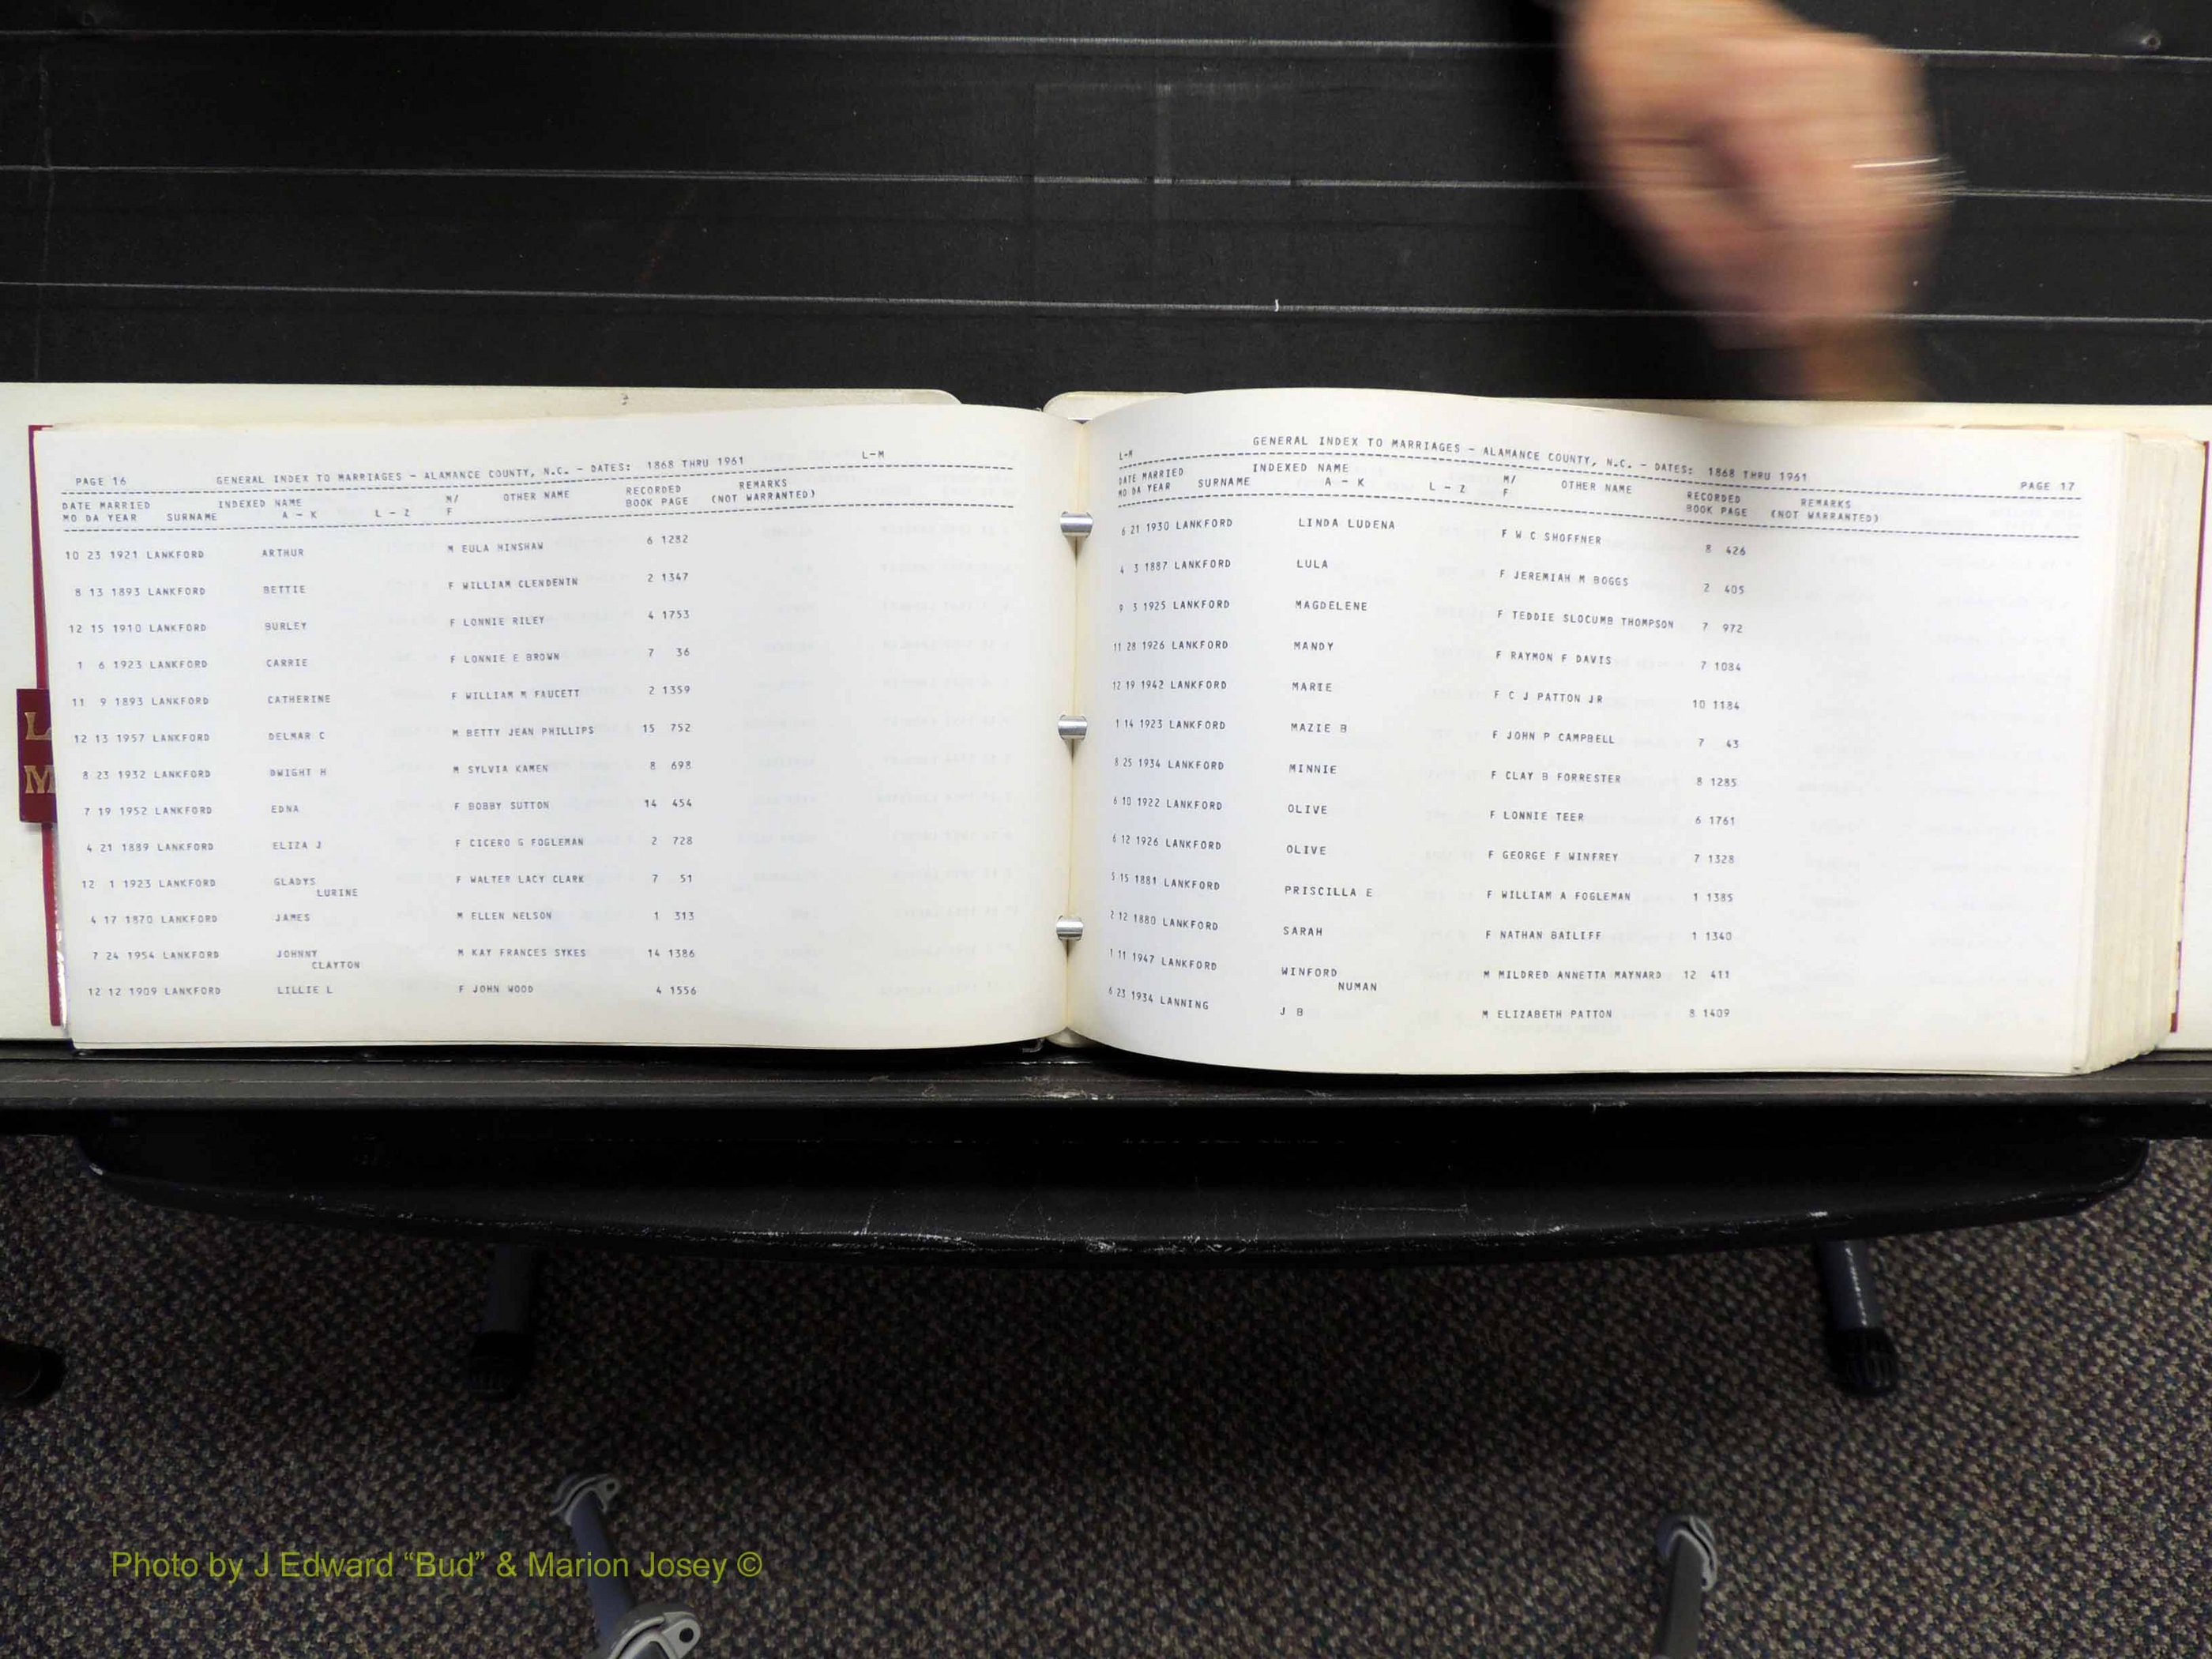 L
M
PAGE 16 GENERAL INDEX TO MARRIAGES - ALAMANCE COUNTY, N.C. - DATES: 1868 THRU 1961 L-M
DATE MARRIED INDEXED NAME M/ OTHER NAME RECORDED REMARKS
MO DA YEAR SURNAME A - K L - Z F BOOK PAGE (NOT WARRANTED)
10 23 1921 LANKFORD ARTHUR M EULA HINSHAW 6 1282
8 13 1893 LANKFORD BETTIE F WILLIAM CLENDENIN 2 1347
12 15 1910 LANKFORD BURLEY F LONNIE RILEY 4 1753
1 6 1923 LANKFORD CARRIE F LONNIE E BROWN 7 36
11 9 1893 LANKFORD CATHERINE F WILLIAM M FAUCETT 2 1359
12 13 1957 LANKFORD DELMAR C M BETTY JEAN PHILLIPS 15 752
8 23 1932 LANKFORD DWIGHT H M SYLVIA KAMEN 8 698
7 19 1952 LANKFORD EDNA F BOBBY SUTTON 14 454
4 21 1889 LANKFORD ELIZA J F CICERO G FOGLEMAN 2 728
12 1 1923 LANKFORD GLADYS F WALTER LACY CLARK 7 51
LURINE
4 17 1870 LANKFORD JAMES M ELLEN NELSON 1 313
7 24 1954 LANKFORD JOHNNY M KAY FRANCES SYKES 14 1386
CLAYTON
12 12 1909 LANKFORD LILLIE L F JOHN WOOD 4 1556
L-M GENERAL INDEX TO MARRIAGES - ALAMANCE COUNTY, N.C. - DATES: 1868 THRU 1961 PAGE 17
DATE MARRIED INDEXED NAME M/ OTHER NAME RECORDED REMARKS
MO DA YEAR SURNAME A - K L - Z F BOOK PAGE (NOT WARRANTED)
6 21 1930 LANKFORD LINDA LUDENA F W C SHOFFNER 8 426
4 3 1887 LANKFORD LULA F JEREMIAH M BOGGS 2 405
9 3 1925 LANKFORD MAGDELENE F TEDDIE SLOCUMB THOMPSON 7 972
11 28 1926 LANKFORD MANDY F RAYMON F DAVIS 7 1084
12 19 1942 LANKFORD MARIE F C J PATTON JR 10 1184
1 14 1923 LANKFORD MAZIE B F JOHN P CAMPBELL 7 43
8 25 1934 LANKFORD MINNIE F CLAY B FORRESTER 8 1285
6 10 1922 LANKFORD OLIVE F LONNIE TEER 6 1761
6 12 1926 LANKFORD OLIVE F GEORGE F WINFREY 7 1328
5 15 1881 LANKFORD PRISCILLA E F WILLIAM A FOGLEMAN 1 1385
2 12 1880 LANKFORD SARAH F NATHAN BAILIFF 1 1340
1 11 1947 LANKFORD WINFORD M MILDRED ANNETTA MAYNARD 12 411
NUMAN
6 23 1934 LANNING J B M ELIZABETH PATTON 8 1409
Photo by J Edward “Bud” & Marion Josey ©